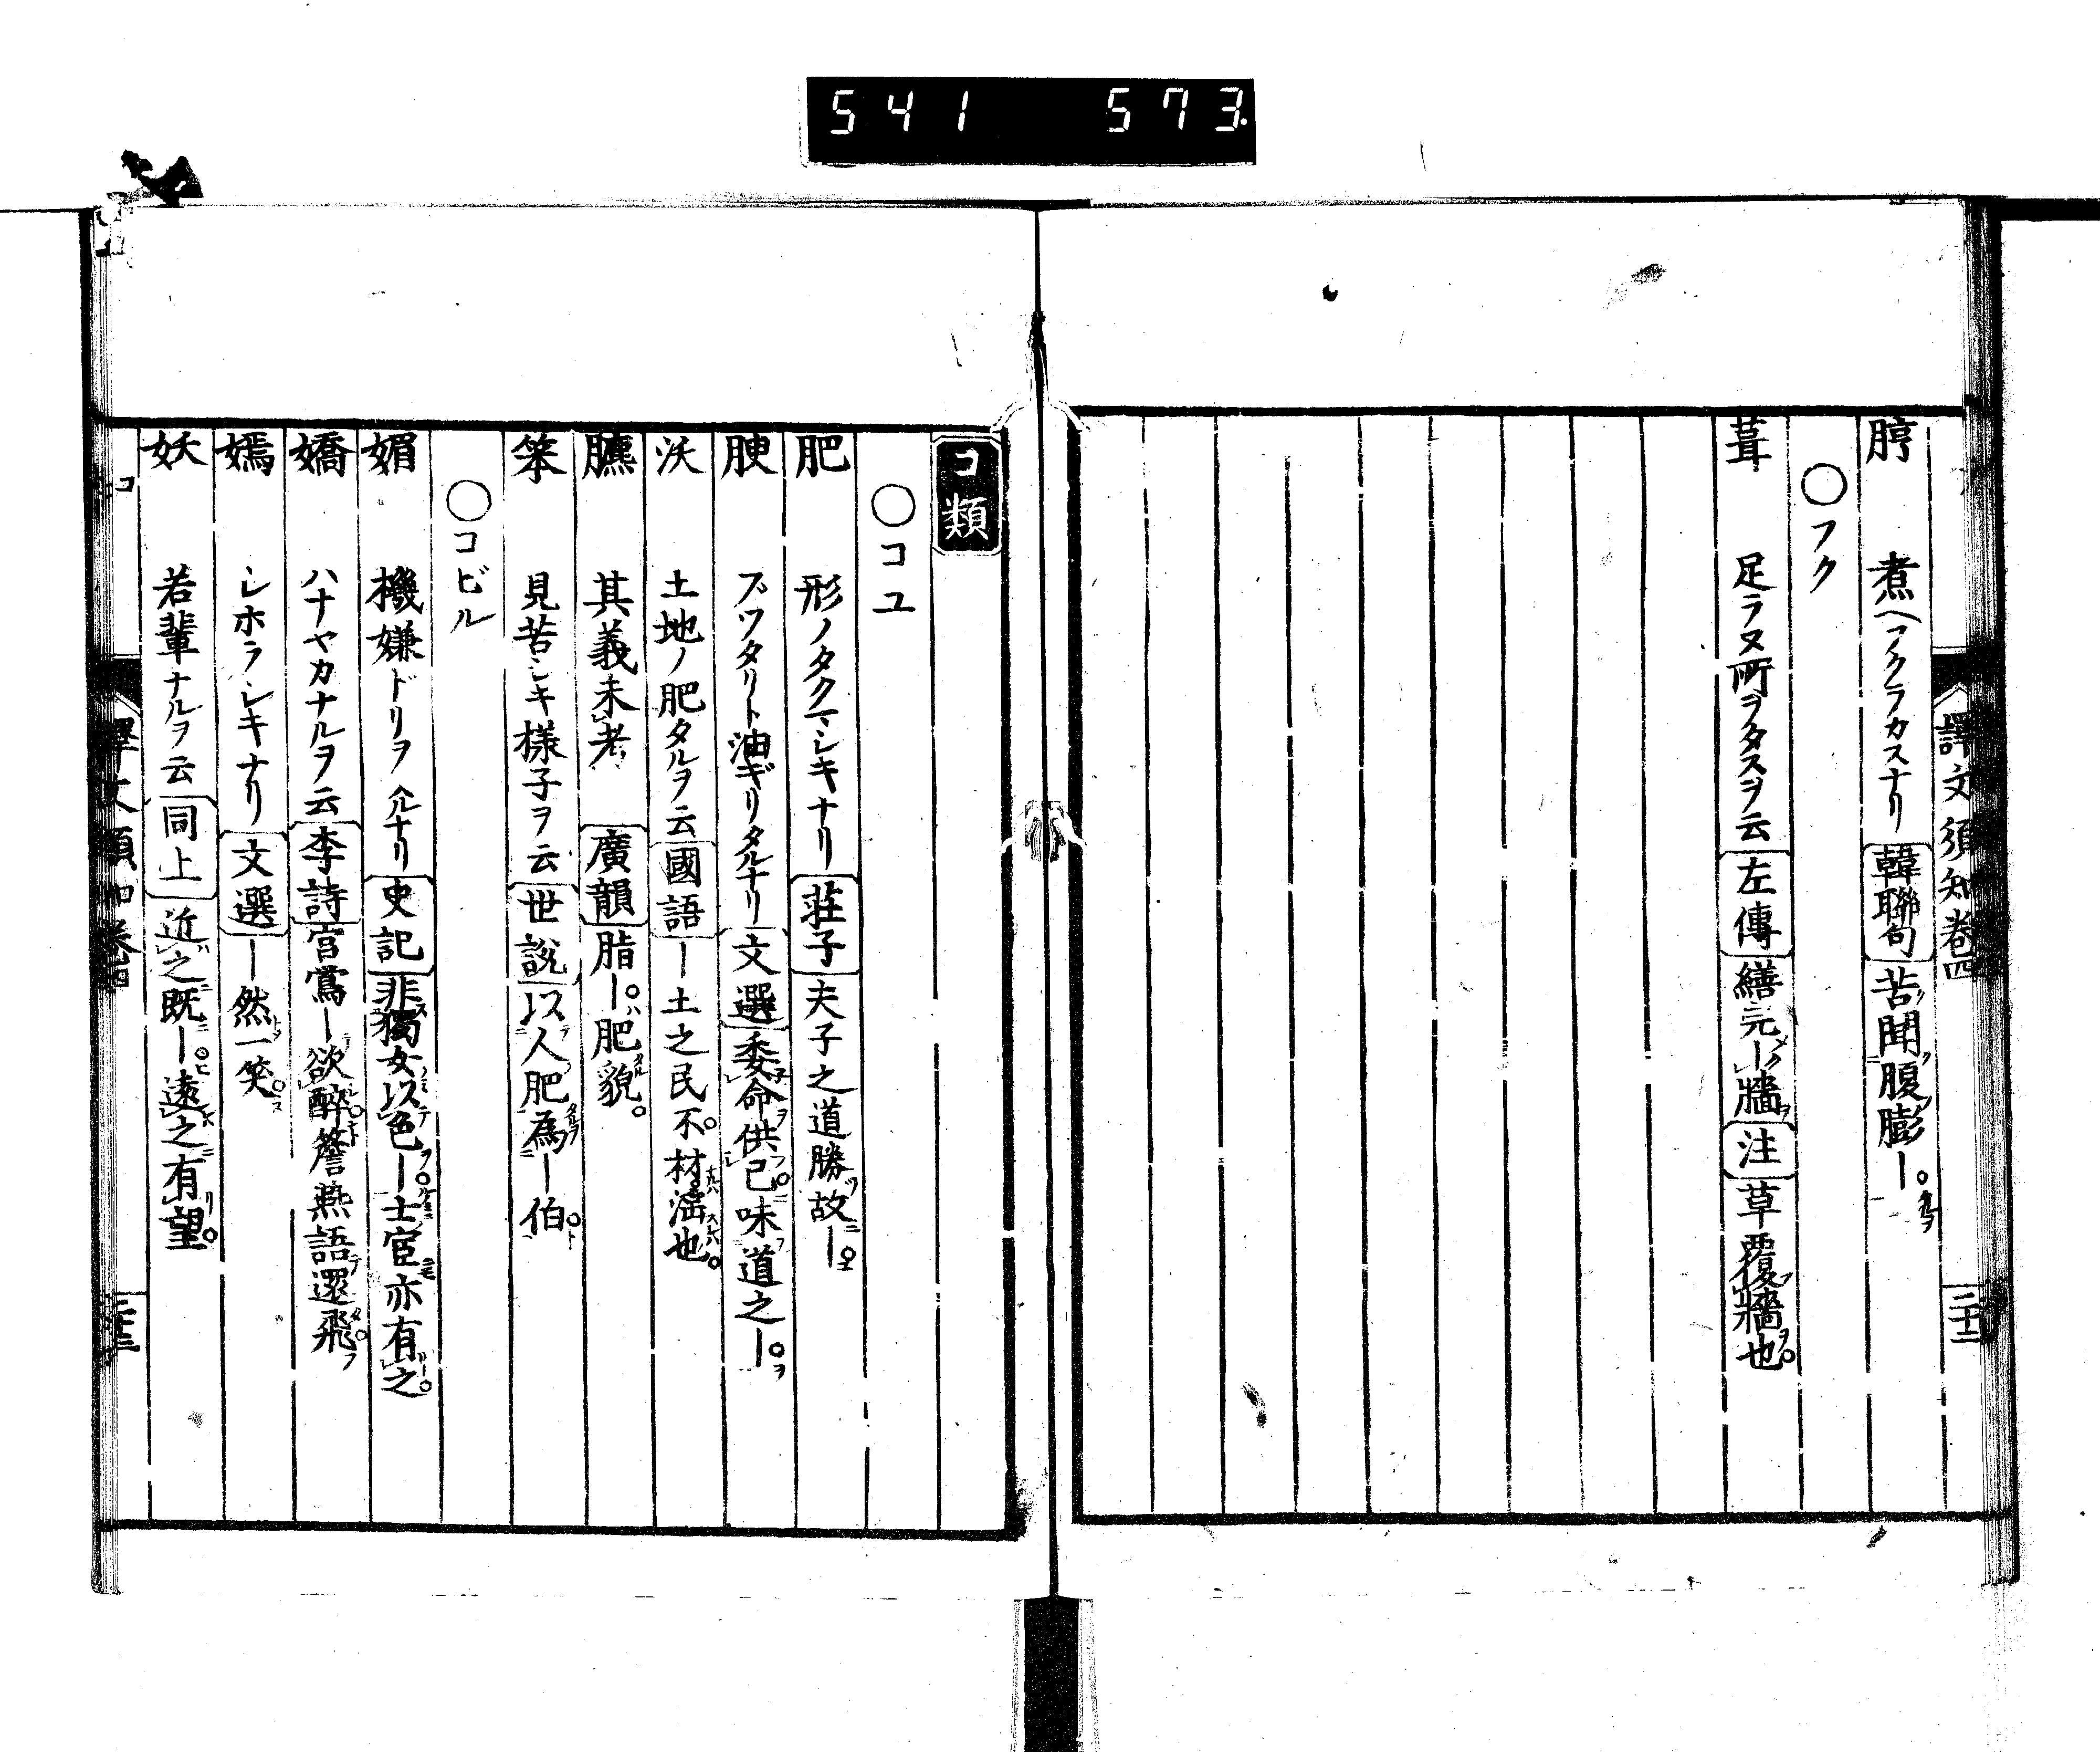 541 573.
譯文須知卷四 二十二
脝 煮ヘフクラカスナリ 韓聯句 苦聞腹膨ー
○フク
葺 足ラヌ所ヲタスヲ云 左傳 繕完ー牆 注 草覆牆也
コ類
○コユ
肥 形ノタクマシキナリ 莊子 夫子之道勝故ー
腴 ズワタリト油ギリタルナリ 文選 委命供己味道之ー
沃 土地ノ肥タルヲ云 國語 ー土之民不材淫也
臕 其義未考 廣韻 脂ー肥貌
笨 見苦シキ様子ヲ云 世說 以人肥為ー伯
○コビル
媚 機嫌ドリヲスルナリ 史記 非獨女以色ー士宦亦有之
嬌 ハナヤカナルヲ云 李詩 宮鶯ー欲醉簷燕語還飛
嫣 シホラシキナリ 文選 ー然一笑
妖 若輩ナルヲ云 同上 近之既ー遠之有望
コ 譯文須知卷四 二十三